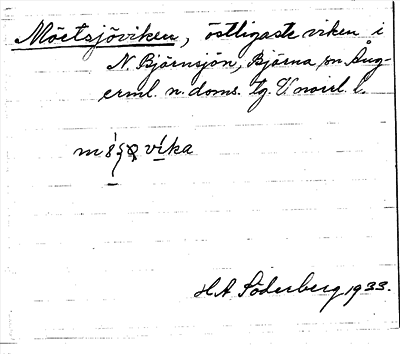 Möetsjöviken, östligaste viken i
N. Björnsjön, Björna sn Ång-
erml. n. doms. tg. V norrl. l.
vika
H A Söderberg 1933.